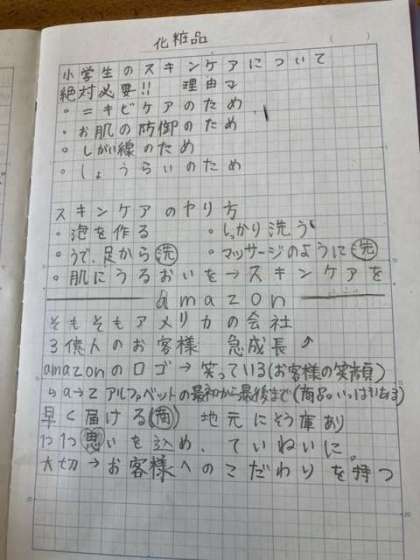 化粧品 ( )
小学生のスキンケアについて
絶対必要!! 理由↴
・ニキビケアのため
・お肌の防御のため
・しがい線のため
・しょうらいのため
スキンケアのやり方
・泡を作る ・しっかり洗う
・うで、足から洗 ・マッサージのように洗
・肌にうるおいを→スキンケアを
amazon
そもそもアメリカの会社
3億人のお客様 急成長↗
amazonのロゴ→笑っている(お客様の笑顔)
↳a→z アルファベットの最初から最後まで(商品いっぱいある)
早く届ける(商) 地元にそう庫あり
1つ1つ思いを込め、ていねいに。
大切→お客様へのこだわりを持つ